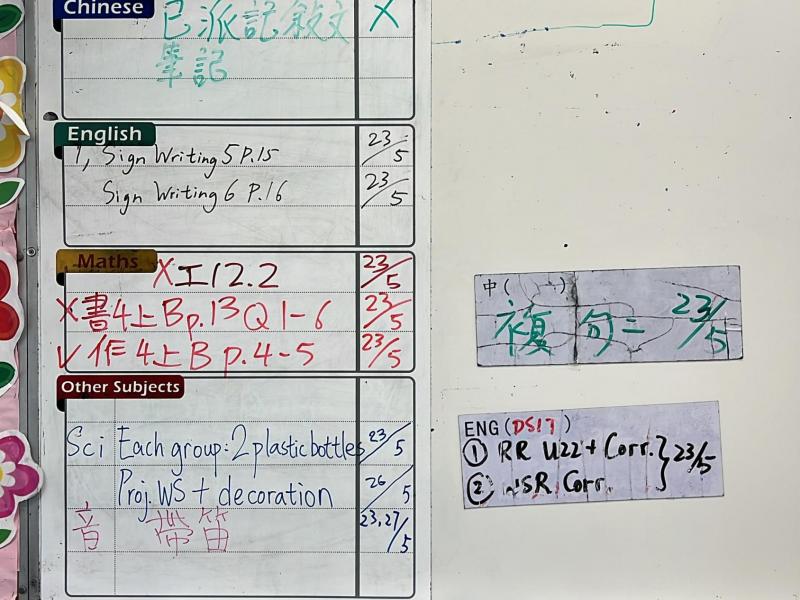 Chinese
已派記敘文 X
筆記
English
1, Sign Writing 5 P.15 23/5
Sign Writing 6 P.16 23/5
Maths
X工12.2 23/5
X書4上B p.13 Q 1-6 23/5
✓作4上B p.4-5 23/5
Other Subjects
Sci Each group: 2 plastic bottles 23/5
Proj. WS + decoration 26/5
音 帶笛 23,27/5
中( )
複句二 23/5
ENG (DS17)
① RR U22 + Corr. } 23/5
② Corr.